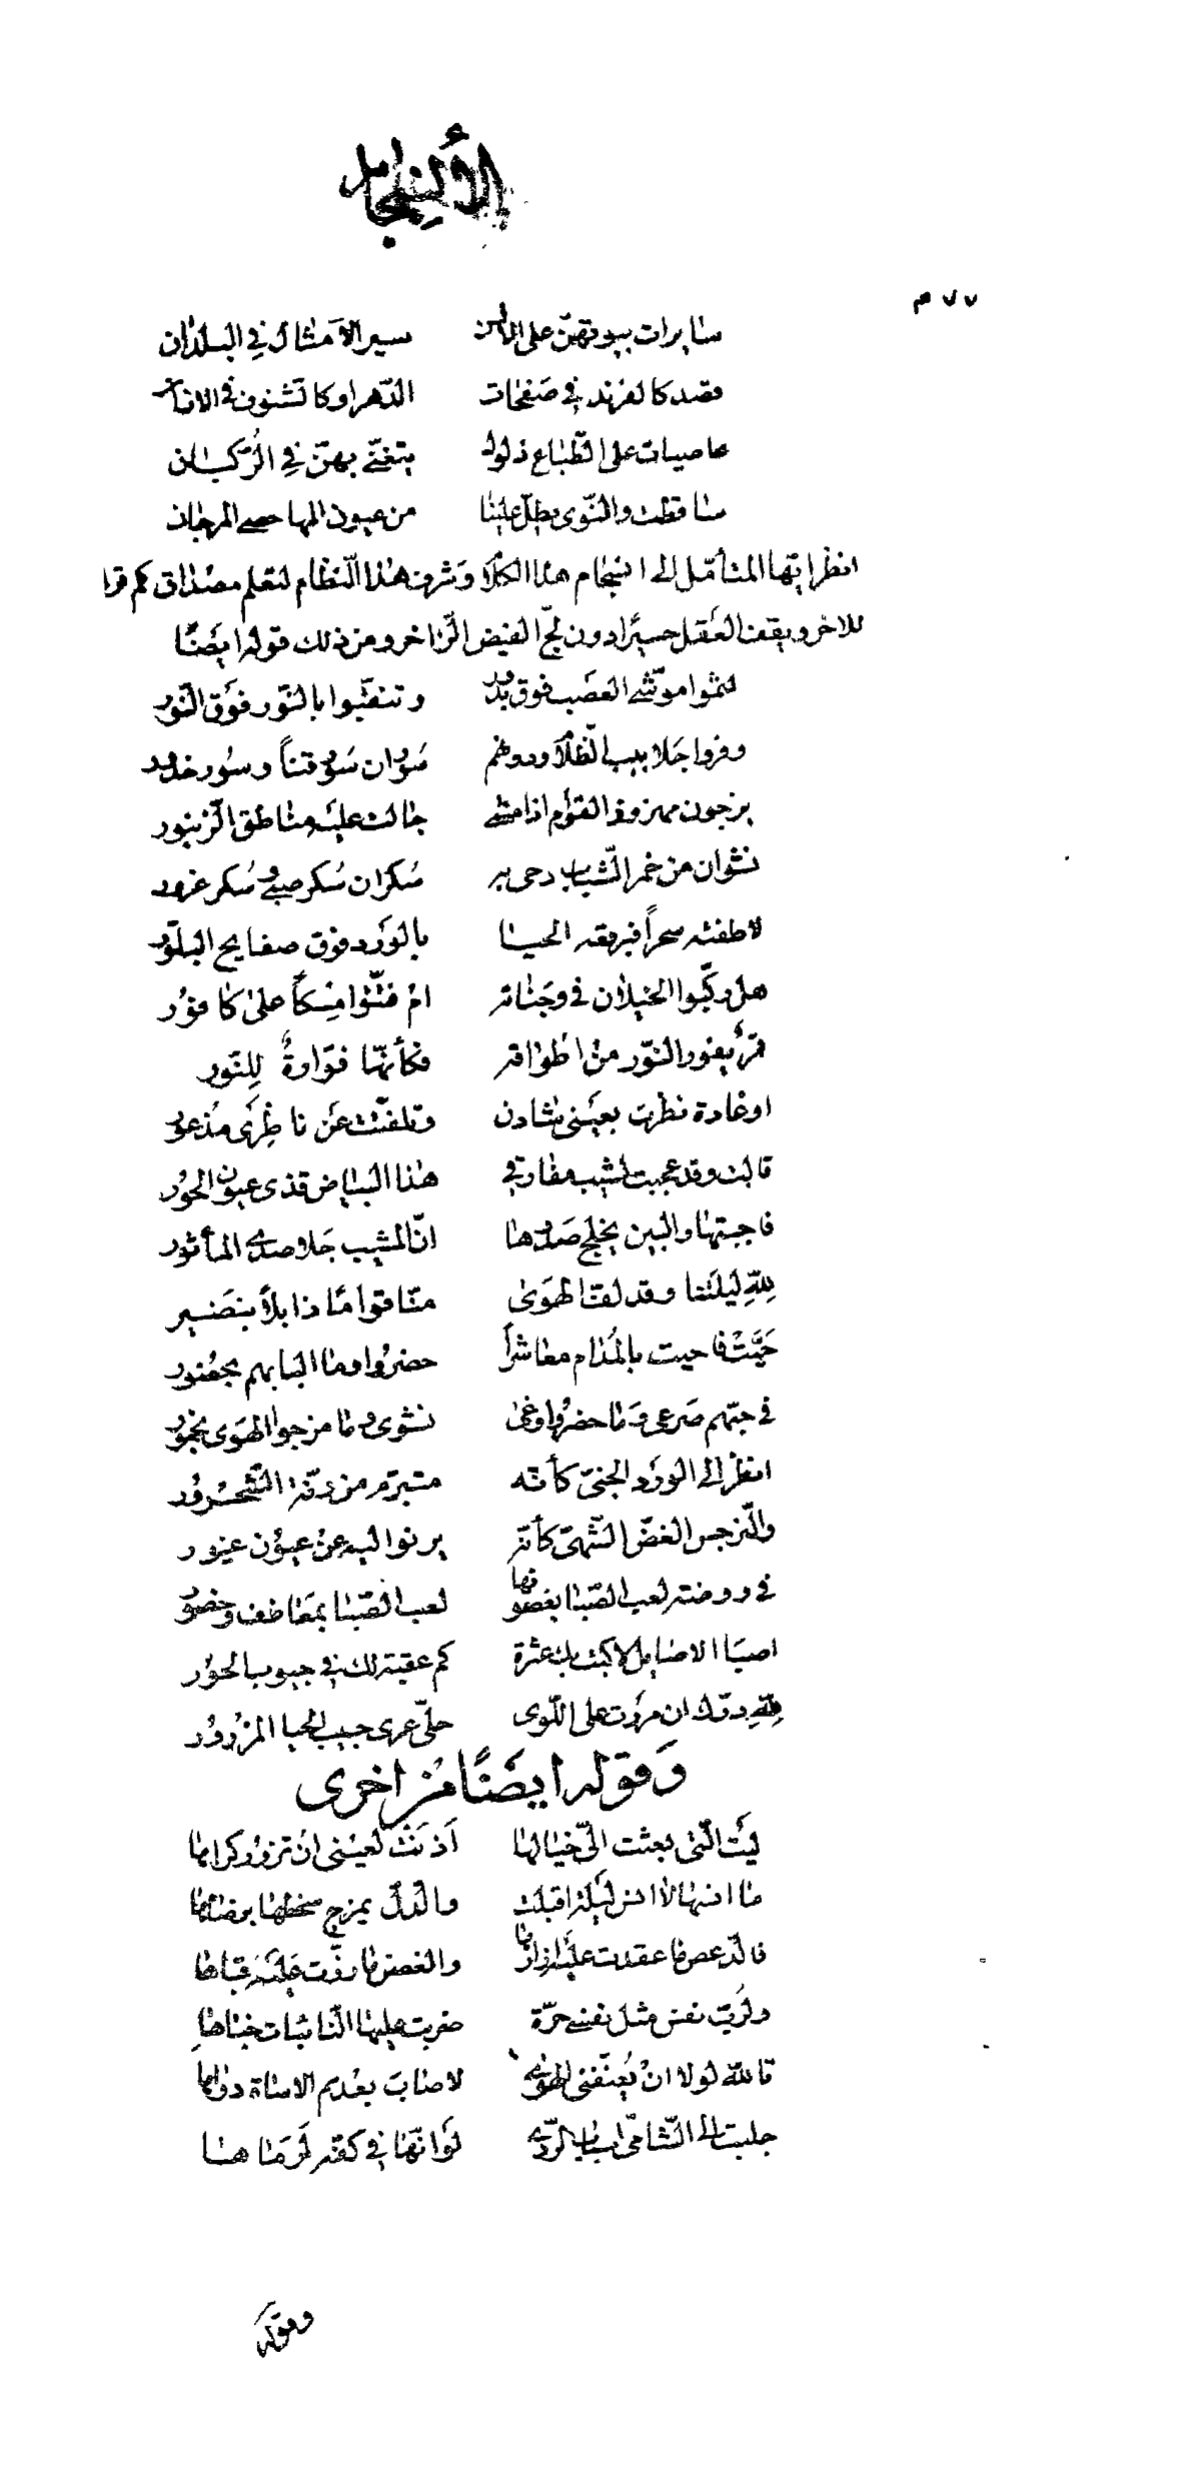 الانسجام
٢٧٧
سايرات بيوتهن على الناس سير الامثال في البلدان
قصد كالفرند في صفحات الدهر او كالشنوف في الاذان
عاصيات على الطباع ذلول يتغنى بهن في الركبان
ساقطت والنوى يطل علينا من عيون المها حصى المرجان
انظر ايها المتأمل الى انسجام هذا الكلام وشرف هذا النظام لتعلم مصداق كم ترك
للاخر ويقف العقل حسيرا دون لج الفيض الزاخر ومن ذلك قوله ايضًا
لثموا موشى العصب فوق بدور وتنقبوا بالنور فوق النور
وفروا جلابيب الظلام ودونهم سوران سور قناً وسور خدور
يزجون مهزوز القوام اذا مشى جالت عليه مناطق الزنبور
نشوان من خمر الشباب دحى به سكران سكر صبى وسكر غرور
لاطفته سحراً فبرقعه الحيا بالورد فوق صفايح البلور
هل ركبوا الخيلان في وجناته ام فتتوا مسكاً على كافور
قمرٌ يفور النور من اطواقه فكأنها فوارةٌ للنور
او غادة نظرت بعينى شادن وتلفتت عن ناظرى مذعور
قالت وقد عجبت لشيب مفارقي هذا البياض قذى عيون الحور
فاجبتها والبين يخلج صدرها ان المشيب جلا صدى المأثور
لله ليلتنا وقد لفت الهوى منا قواماً ذابلاً بنضير
حيت فاحيت بالمدام معاشراً حضروا وما البابهم بحضور
في حبهم صرعى وما حضروا وغى نشوى وما مزجوا الهوى بخمور
انظر الى الورد الجنى كأنه متبرم من رنة الشحرور
والنرجس الغض الشهى كأنه يرنوا اليه عن عيون غيور
في روضة لعب الصبا بغصونها لعب الصبا بمعاطف وخصور
اصبا الاصايل لاكبت بك عثرة كم عقبة لك في جيوب الحور
لله درك ان مررت على اللوى حلى عرى جيب الحيا المزرور
وقوله ايضًا من اخرى
ليت التى بعثت الى خيالها اذنت لعينى ان تزور كراها
ما انسها لا انس ليلة اقبلت والدل يمزج سخطها برضاها
فالدعص ما عقدت عليه ازارها والغصن ما زرت عليه قباها
ولرب نفس مثل نفسى حرة ضربت عليها النائبات خباها
تالله لولا ان يعنفنى الهوى لاصاب بعدهم الاساة دواها
جلبت الى الشامى اسباب الردى لو انها في كفه لرماها
وقوله